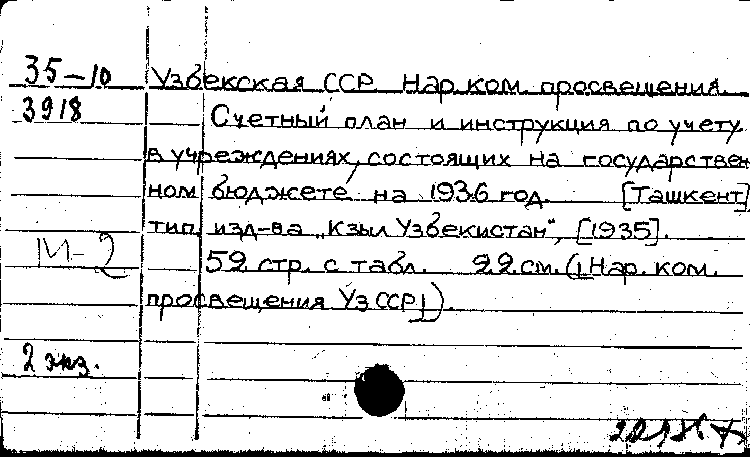 35-10 Узбекская ССР Нар.ком. просвещения.
3918 Счетный план и инструкция по учету
в учреждениях, состоящих на государствен
ном бюджете на 1936 год. [Ташкент]
тип. изд-ва „Кзыл Узбекистан", [1935].
М-2
52 стр. с табл. 22 см. ([Нар. ком.
просвещения УзССР]).
2 экз.